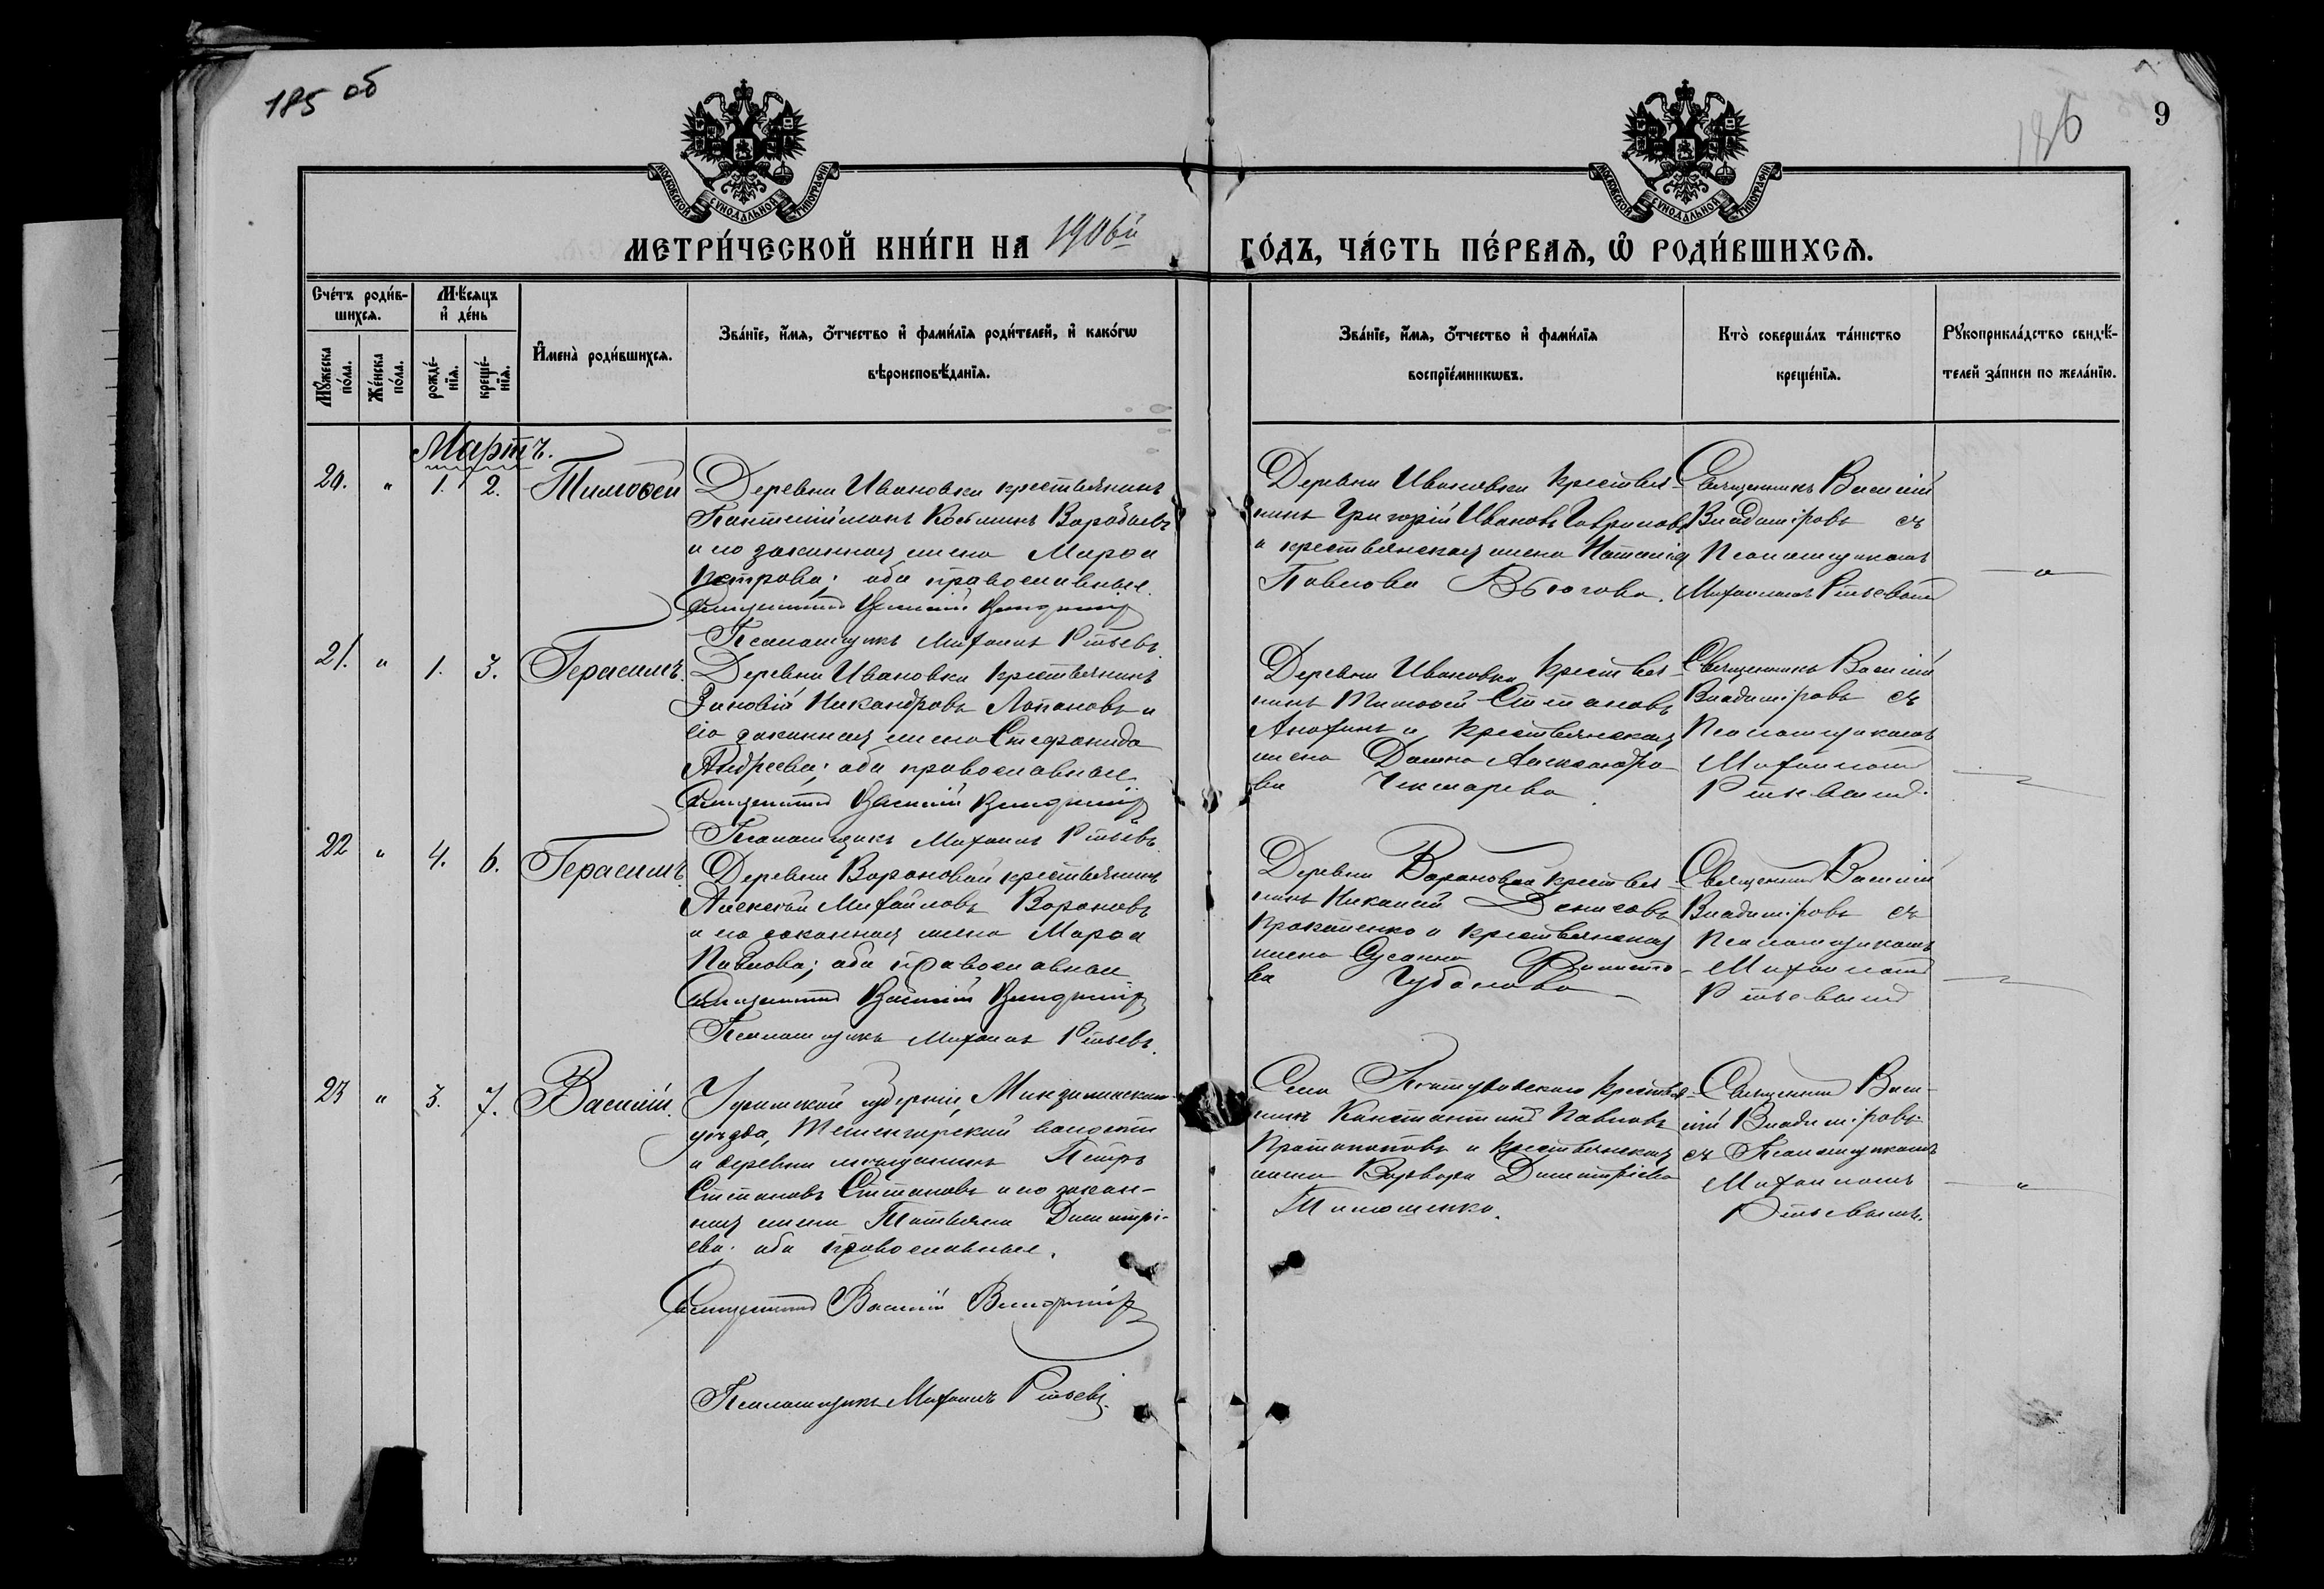 185 об
186
9
МОСКОВСКОЙ СѴНОДАЛЬНОЙ ТИПОГРАФІИ
МОСКОВСКОЙ СѴНОДАЛЬНОЙ ТИПОГРАФІИ
МЕТРИ́ЧЕСКОЙ КНИ́ГИ НА 1906й ГО́ДЪ, ЧА́СТЬ ПЕ́РВАѦ, Ѡ҆ РОДИ́ВШИХСѦ.
Сче́тъ роди́в-
шихсѧ.
Мꙋ́жеска
по́ла.
Же́нска
по́ла.
Мѣ́сѧцъ
и҆ де́нь
рожде́-
нїѧ.
креще́-
нїѧ.
И҆мена̀ роди́вшихсѧ.
Зва́нїе, и҆́мѧ, ѻ҆́тчество и҆ фами́лїѧ роди́телей, и҆ како́гѡ
вѣроисповѣ́данїѧ.
Зва́нїе, и҆́мѧ, ѻ҆́тчество и҆ фами́лїѧ
воспрїе́мникѡвъ.
Кто̀ соверша́лъ та́инство
креще́нїѧ.
Рꙋкоприкла́дство свидѣ́-
телей за́писи по жела́нїю.
Мартъ.
20. " 1. 2. Тимоѳей
Деревни Ивановки крестьянинъ
Пантелиимонъ Косминъ Воробьевъ
и его законная жена Марѳа
Петрова; оба православные.
Священникъ Василій Владиміровъ
Псаломщикъ Михаилъ Ритьевъ.
Деревни Ивановки крестья-
нинъ Григорій Ивановъ Гавриловъ
и крестьянская жена Наталія
Павлова Вьюгова.
Священникъ Василій
Владиміровъ съ
Псаломщикомъ
Михаиломъ Ритьевымъ
21. " 1. 3. Герасимъ.
Деревни Ивановки крестьянинъ
Зиновій Никандровъ Лопановъ и
его законная жена Стефанида
Андреева; оба православные.
Священникъ Василій Владиміровъ
Псаломщикъ Михаилъ Ритьевъ.
Деревни Ивановки крестья-
нинъ Тимоѳей Степановъ
Анохинъ и крестьянская
жена Домна Александро-
ва Чекмарева.
Священникъ Василій
Владиміровъ съ
Псаломщикомъ
Михаиломъ
Ритьевымъ.
22 " 4. 6. Герасимъ.
Деревни Вороновой крестьянинъ
Алексѣй Михайловъ Вороновъ
и его законная жена Марѳа
Павлова; оба православные
Священникъ Василій Владиміровъ
Псаломщикъ Михаилъ Ритьевъ.
Деревни Вороновой крестья-
нинъ Денисовъ
Прокопенко и крестьянская
жена Сусанна Филипо-
ва
Священникъ Василій
Владиміровъ съ
Псаломщикомъ
Михаиломъ
Ритьевымъ
23 " 3. 7. Василій.
Уфимской губерніи, Мензелинскаго
уѣзда,
и деревни мѣщанинъ Петръ
Степановъ Степановъ и его закон-
ная жена Татьяна Димитрі-
ева; оба православные.
Священникъ Василій Владиміровъ
Псаломщикъ Михаилъ Ритьевъ.
Села крестья-
нинъ Константинъ Павловъ
Протопоповъ и крестьянская
жена Варвара Димитріева
Тимошенко.
Священникъ Васи-
лій Владиміровъ
съ Псаломщикомъ
Михаиломъ
Ритьевымъ.